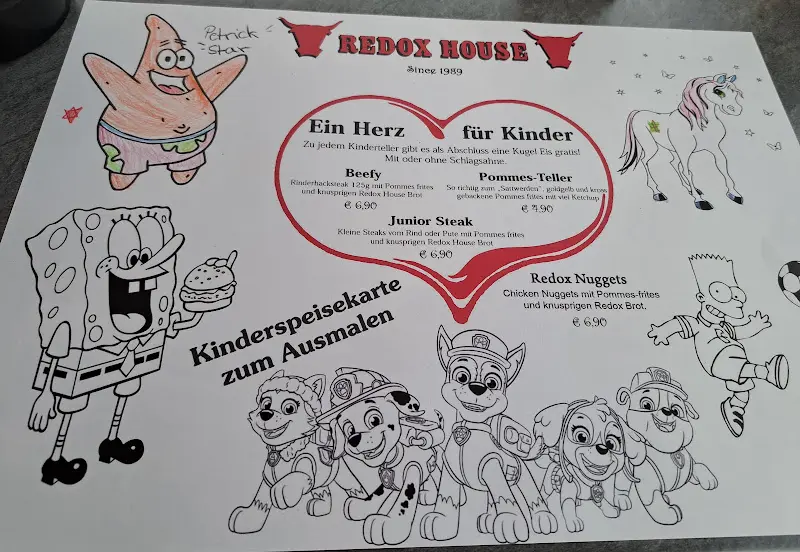 Patrick
Star
REDOX HOUSE
Since 1989
Ein Herz für Kinder
Zu jedem Kinderteller gibt es als Abschluss eine Kugel Eis gratis!
Mit oder ohne Schlagsahne.
Beefy
Rinderhacksteak 125g mit Pommes frites
und knusprigen Redox House Brot
€ 6,90
Pommes-Teller
So richtig zum „Sattwerden", goldgelb und kross
gebackene Pommes frites mit viel Ketchup
€ 4,90
Junior Steak
Kleine Steaks vom Rind oder Pute mit Pommes frites
und knusprigen Redox House Brot
€ 6,90
Redox Nuggets
Chicken Nuggets mit Pommes-frites
und knusprigen Redox Brot.
€ 6,90
Kinderspeisekarte
zum Ausmalen